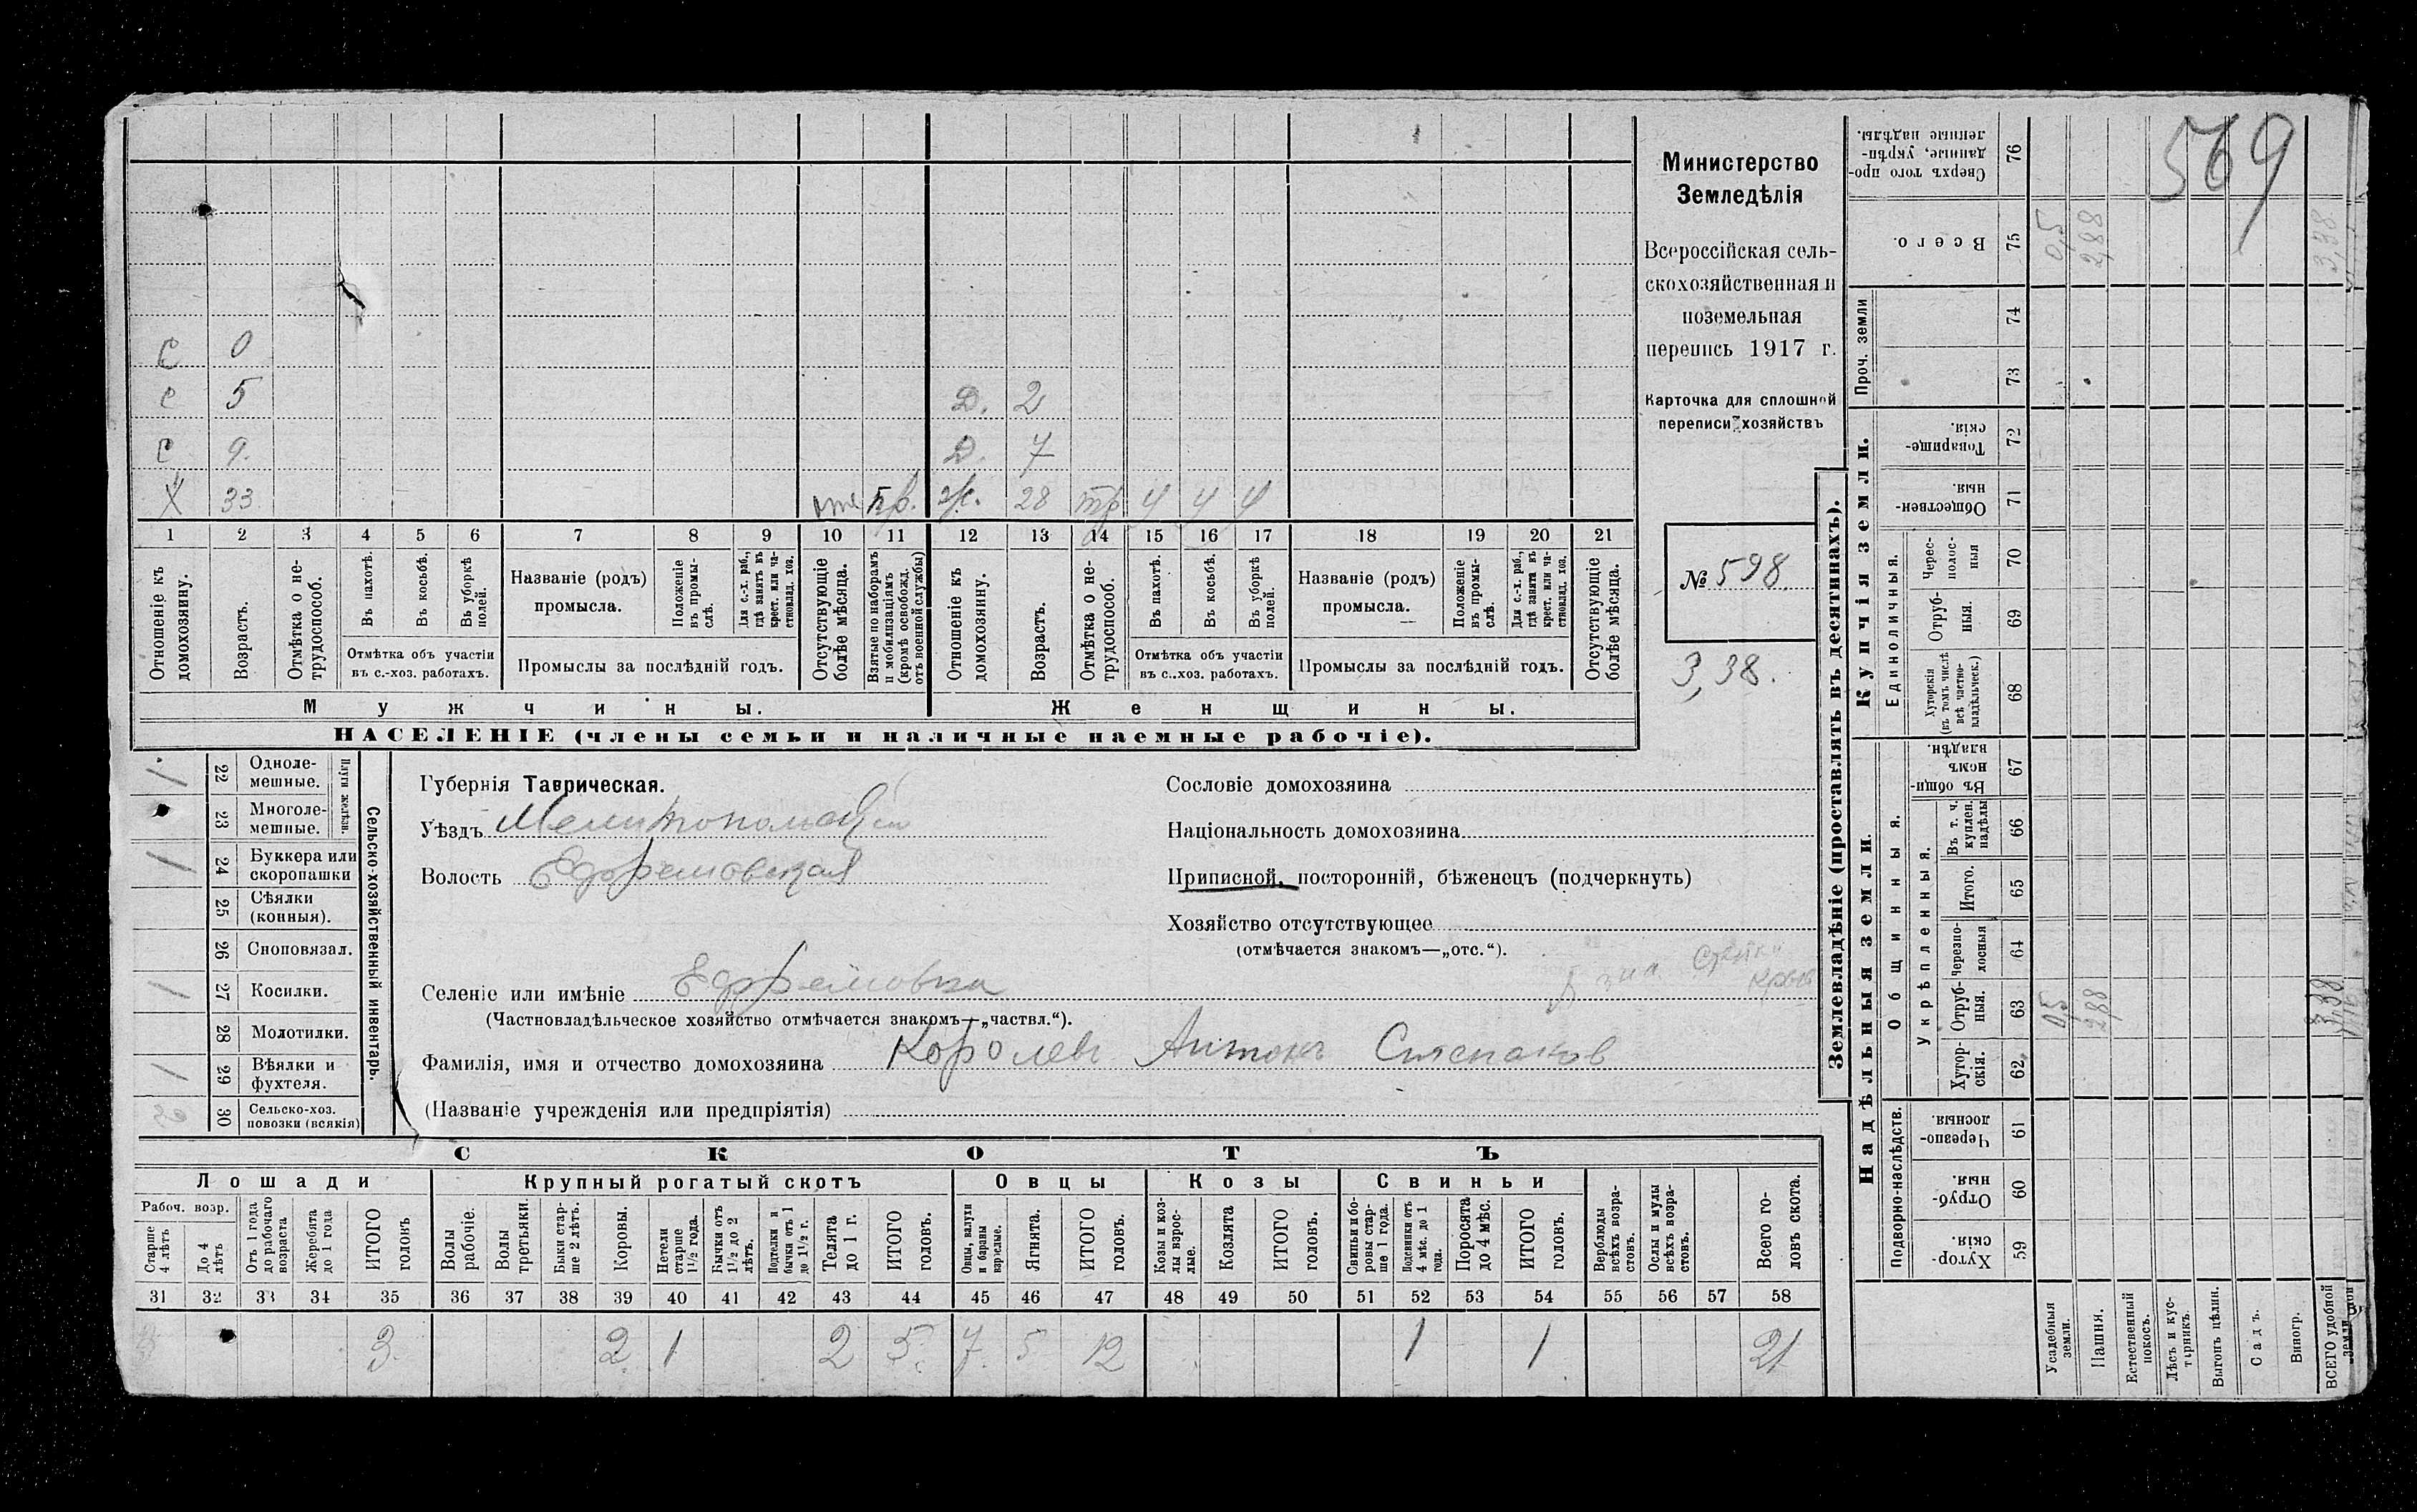 569
Министерство
Земледѣлія
Всероссійская сель-
скохозяйственная и
поземельная
перепись 1917 г.
Карточка для сплошной
переписи хозяйствъ
№ 598
3,38.
С 0
с 5 Д. 2
С 9. Д. 7
Х 33 пр. ж. 28 тр ч ч ч
1 2 3 4 5 6 7 8 9 10 11 12 13 14 15 16 17 18 19 20 21
Отношеніе къ домохозяину.
Возрастъ.
Отмѣтка о не-трудоспособ.
Въ пахотѣ.
Въ косьбѣ.
Въ уборкѣ полей.
Отмѣтка объ участіи
въ с.-хоз. работахъ.
Названіе (родъ)
промысла.
Положеніе въ промы-слѣ.
Для с.-х. раб., гдѣ занятъ въ крест. или ча-стновлад. хоз.
Промыслы за послѣдній годъ.
Отсутствующіе болѣе мѣсяца.
Взятые по наборамъ и мобилизаціямъ (кромѣ освобожд. отъ военной службы)
Отношеніе къ домохозяину.
Возрастъ.
Отмѣтка о не-трудоспособ.
Въ пахотѣ.
Въ косьбѣ.
Въ уборкѣ полей.
Отмѣтка объ участіи
въ с.-хоз. работахъ.
Названіе (родъ)
промысла.
Положеніе въ промы-слѣ.
Для с.-х. раб., гдѣ занята въ крест. или ча-стновлад. хоз.
Промыслы за послѣдній годъ.
Отсутствующіе болѣе мѣсяца.
Мужчины. Женщины.
НАСЕЛЕНІЕ (члены семьи и наличные наемные рабочіе).
Сельско-хозяйственный инвентарь.
Плуги желѣзн.
/ 22 Одноле-мешные.
23 Многоле-мешные.
/ 24 Буккера или скоропашки
25 Сѣялки (конныя).
26 Сноповязал.
/ 27 Косилки.
28 Молотилки.
/ 29 Вѣялки и фухтеля.
30 Сельско-хоз. повозки (всякія)
Губернія Таврическая.
Уѣздъ Мелитопольскій
Волость Ефремовская
Селеніе или имѣніе Ефремовка
(Частновладѣльческое хозяйство отмѣчается знакомъ—„частвл.“).
Фамилія, имя и отчество домохозяина Королевъ Антонъ Степановъ
(Названіе учрежденія или предпріятія)
Сословіе домохозяина
Національность домохозяина
Приписной, посторонній, бѣженецъ (подчеркнуть)
Хозяйство отсутствующее
(отмѣчается знакомъ—„отс.“).
СКОТЪ
Лошади Крупный рогатый скотъ Овцы Козы Свиньи
Рабоч. возр.
Старше 4 лѣтъ
До 4 лѣтъ
Отъ 1 года до рабочаго возраста
Жеребята до 1 года
ИТОГО головъ
Волы рабочіе.
Волы третьяки.
Быки стар-ше 2 лѣтъ.
Коровы.
Нетели старше 1½ года.
Бычки отъ 1½ до 2 лѣтъ.
Подтелки и бычки отъ 1 до 1½ г.
Телята до 1 г.
ИТОГО головъ.
Овцы, валухи и бараны взрослые.
Ягнята.
ИТОГО головъ.
Козы и коз-лы взрос-лые.
Козлята
ИТОГО головъ.
Свиньи и бо-ровы стар-ше 1 года.
Подсвинки отъ 4 мѣс. до 1 года.
Поросята до 4 мѣс.
ИТОГО головъ.
Верблюды всѣхъ возра-стовъ.
Ослы и мулы всѣхъ возра-стовъ.
Всего го-ловъ скота.
31 32 33 34 35 36 37 38 39 40 41 42 43 44 45 46 47 48 49 50 51 52 53 54 55 56 57 58
3 3 2 1 2 5 7 5 12 1 1 21
Землевладѣніе (проставлять въ десятинахъ).
Надѣльныя земли. Купчія земли. Проч. земли
Подворно-наслѣдств.
Общинныя.
Укрѣпленныя.
Единоличныя.
59 Хутор-скія.
60 Отруб-ныя.
61 Черезпо-лосныя.
62 Хутор-скія.
63 Отруб-ныя.
64 Черезпо-лосныя
65 Итого.
66 Въ т. ч. куплен. надѣлы
67 Въ общи-номъ владѣн.
68 Хуторскія (въ томъ числѣ всѣ частно-владѣльческ.)
69 Отруб-ныя.
70 Черес-полос-ныя
71 Обществен-ныя.
72 Товарище-скія.
73
74
75 Всего.
76 Сверхъ того про-данные, укрѣп-ленные надѣлы.
Усадебныя земли. 0,5 0,5
Пашня. 2,88 2,88
Естественный покосъ.
Лѣсъ и кус-тарникъ.
Выгонъ цѣлин.
Садъ.
Виногр.
ВСЕГО удобной земли 3,38 3,38